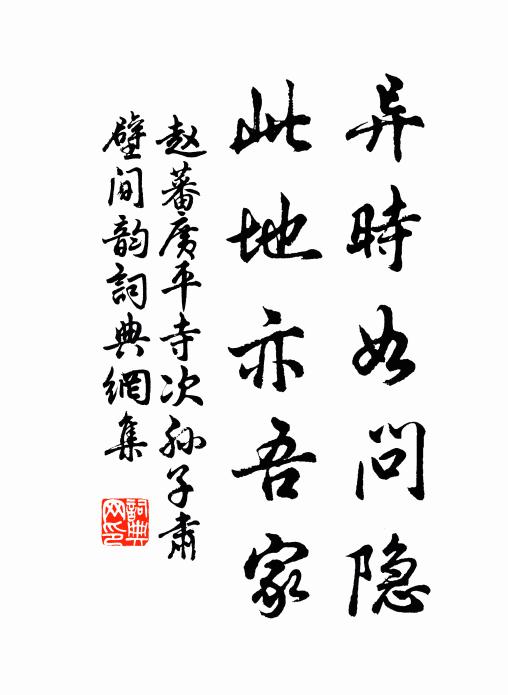 异時如问隐
此地亦吾家
赵蕃广平寺次孙子肃
壁间韵詞典網集
詞典网印